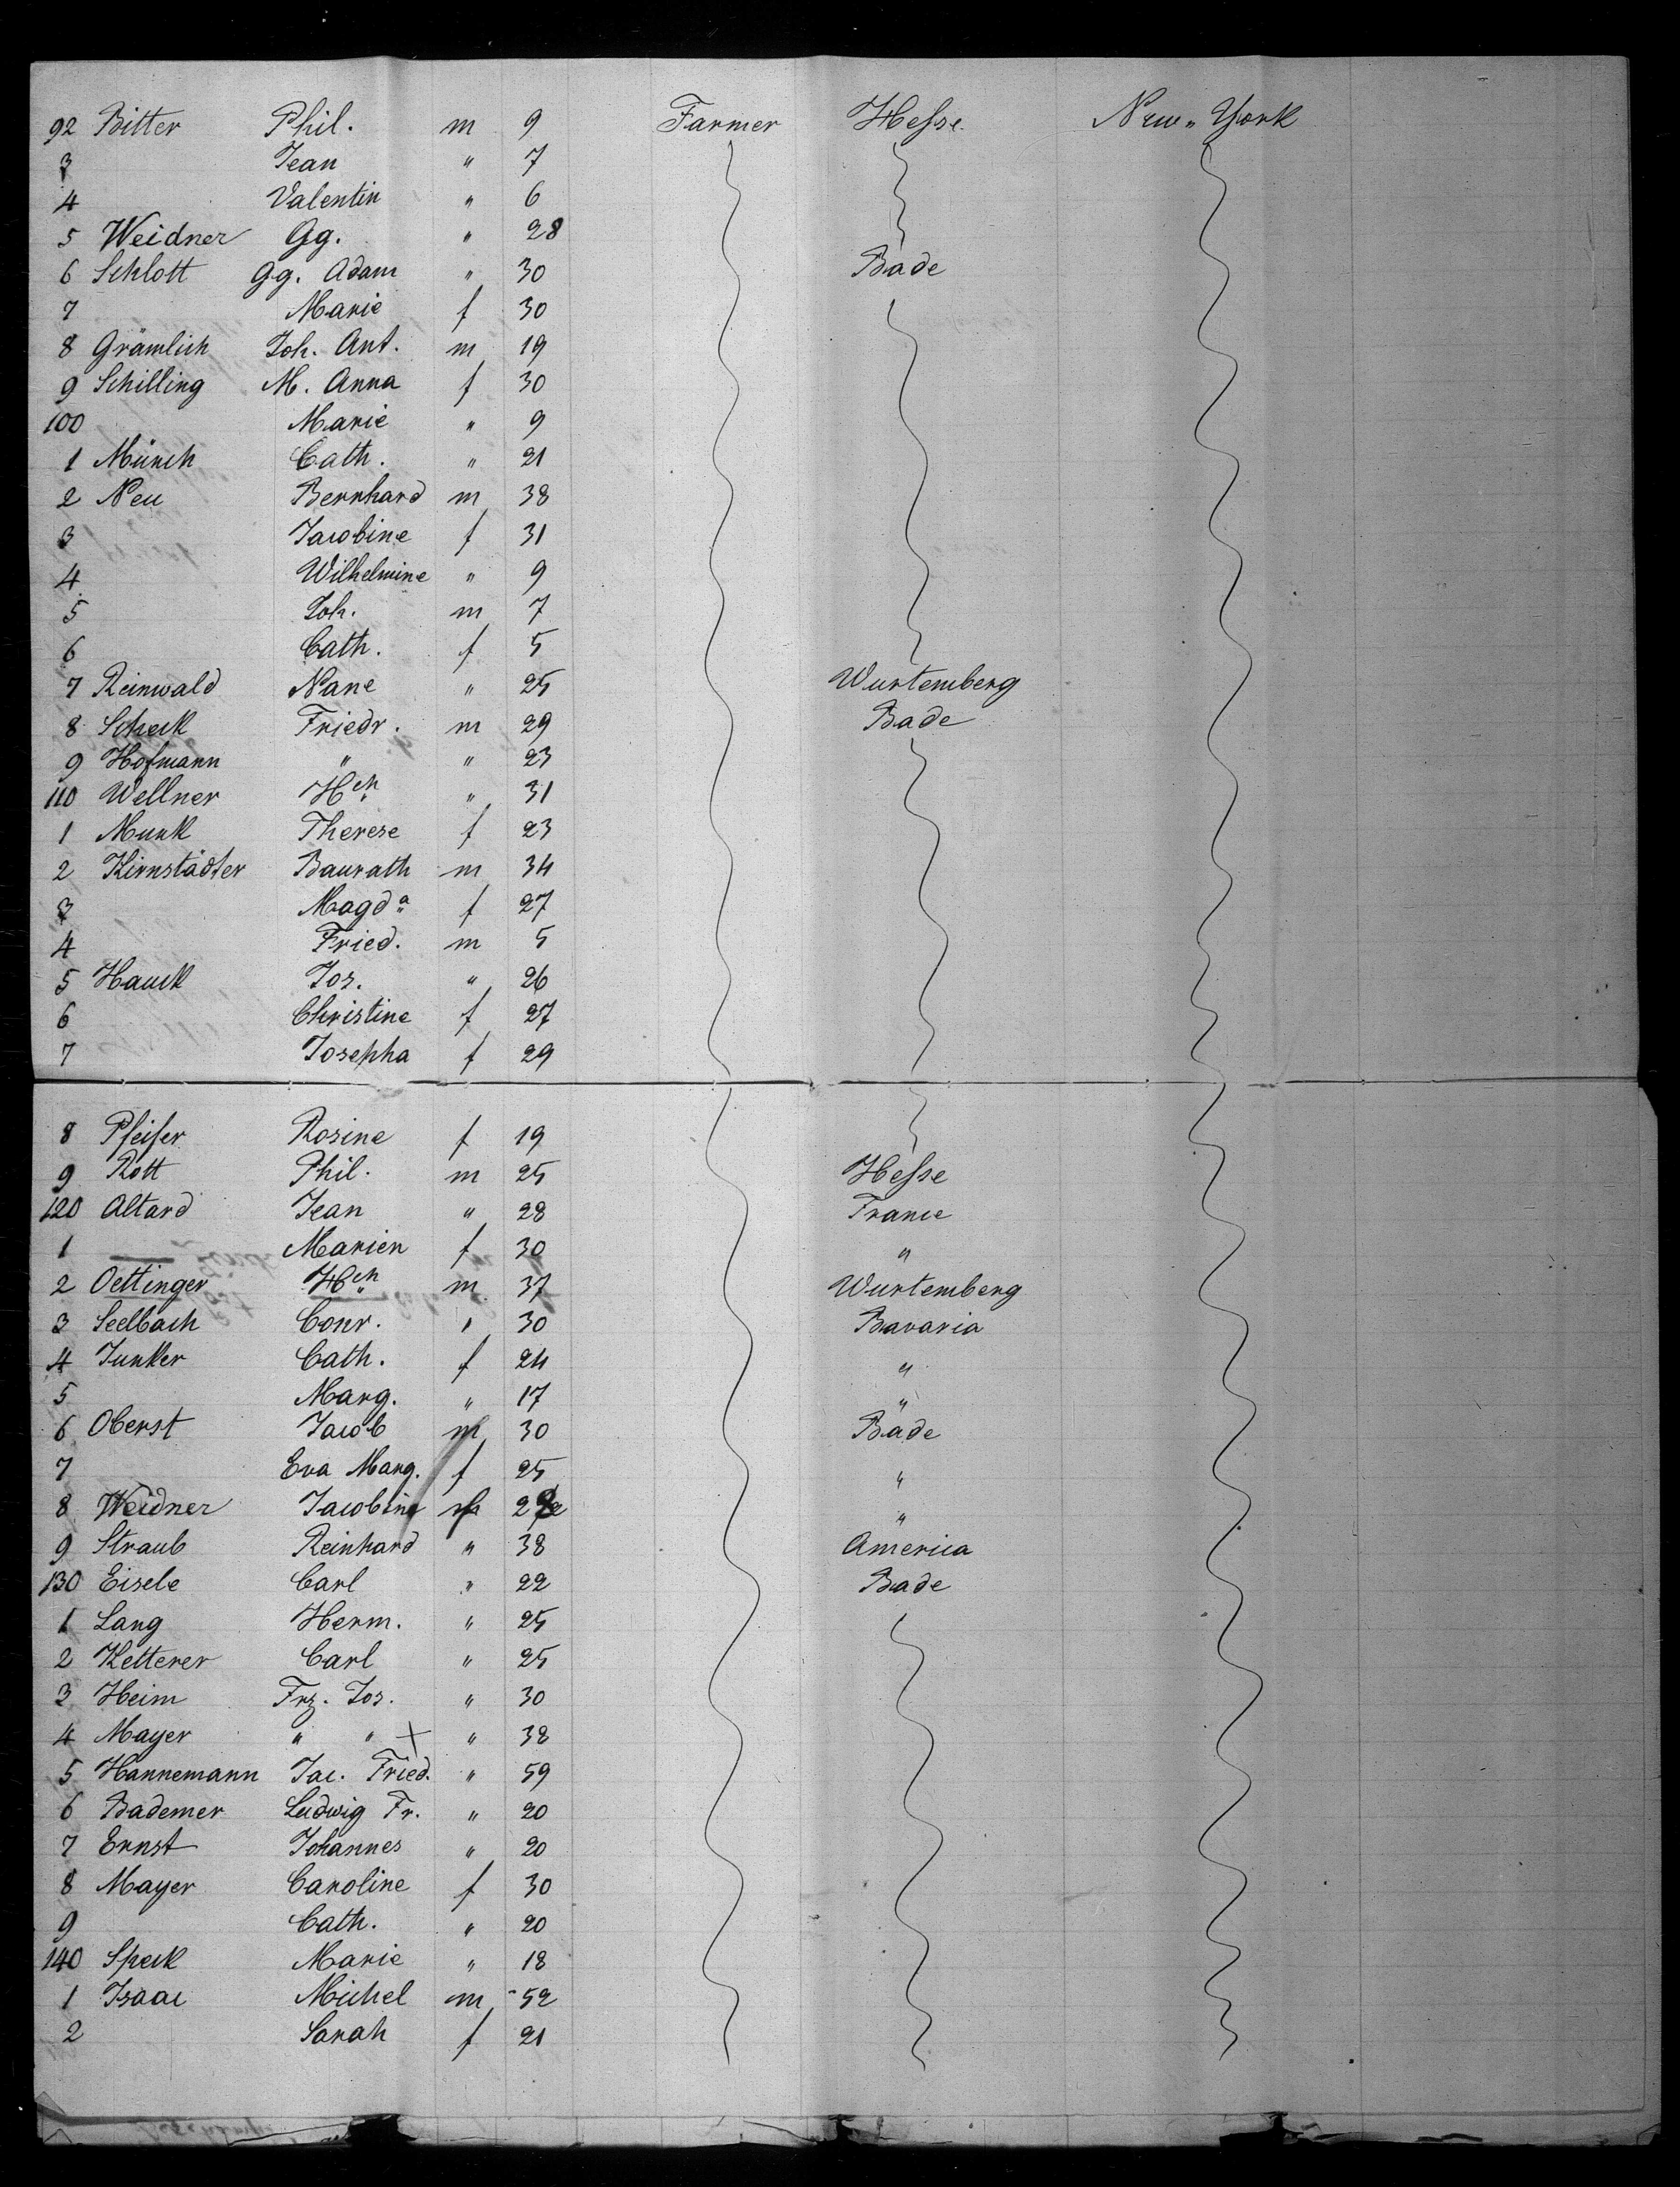 92 Bitter Phil. m 9 Farmer Hesse New-York
3 Jean " 7
4 Valentin " 6
5 Weidner Gg. " 28
6 Schlott Gg. Adam " 30 Bade
7 Marie f 30
8 Grämlich Joh. Ant. m 19
9 Schilling M. Anna f 30
100 Marie " 9
1 Münch Cath. " 21
2 Neu Bernhard m 38
3 Jacobine f 31
4 Wilhelmine " 9
5 Joh. m 7
6 Cath. f 5
7 Reinwald Nane " 25 Wurtemberg
8 Scheck Friedr. m 29 Bade
9 Hofmann " " 23
110 Wellner Hch " 31
1 Munk Therese f 23
2 Kirnstädter Baurath m 34
3 Magda f 27
4 Fried. m 5
5 Hauck Jos. " 26
6 Christine f 27
7 Josepha f 29
8 Pfeifer Rosine f 19
9 Rott Phil. m 25 Hesse
120 Altard Jean " 28 France
1 Marien f 30 "
2 Oettinger Hch m 37 Wurtemberg
3 Seelbach Conr. " 30 Bavaria
4 Junker Cath. f 24 "
5 Marg. " 17 "
6 Oberst Jacob m 30 Bade
7 Eva Marg. f 25 "
8 Weidner Jacobine "
9 Straub Reinhard " 38 America
130 Eisele Carl " 22 Bade
1 Lang Herm. " 25
2 Ketterer Carl " 25
3 Heim Frz. Jos. " 30
4 Mayer " " + " 38
5 Hannemann Jac. Fried. " 59
6 Bademer Ludwig Fr. " 20
7 Ernst Johannes " 20
8 Mayer Caroline f 30
9 Cath. " 20
140 Speck Marie " 18
1 Isaac Michel m 52
2 Sarah f 21